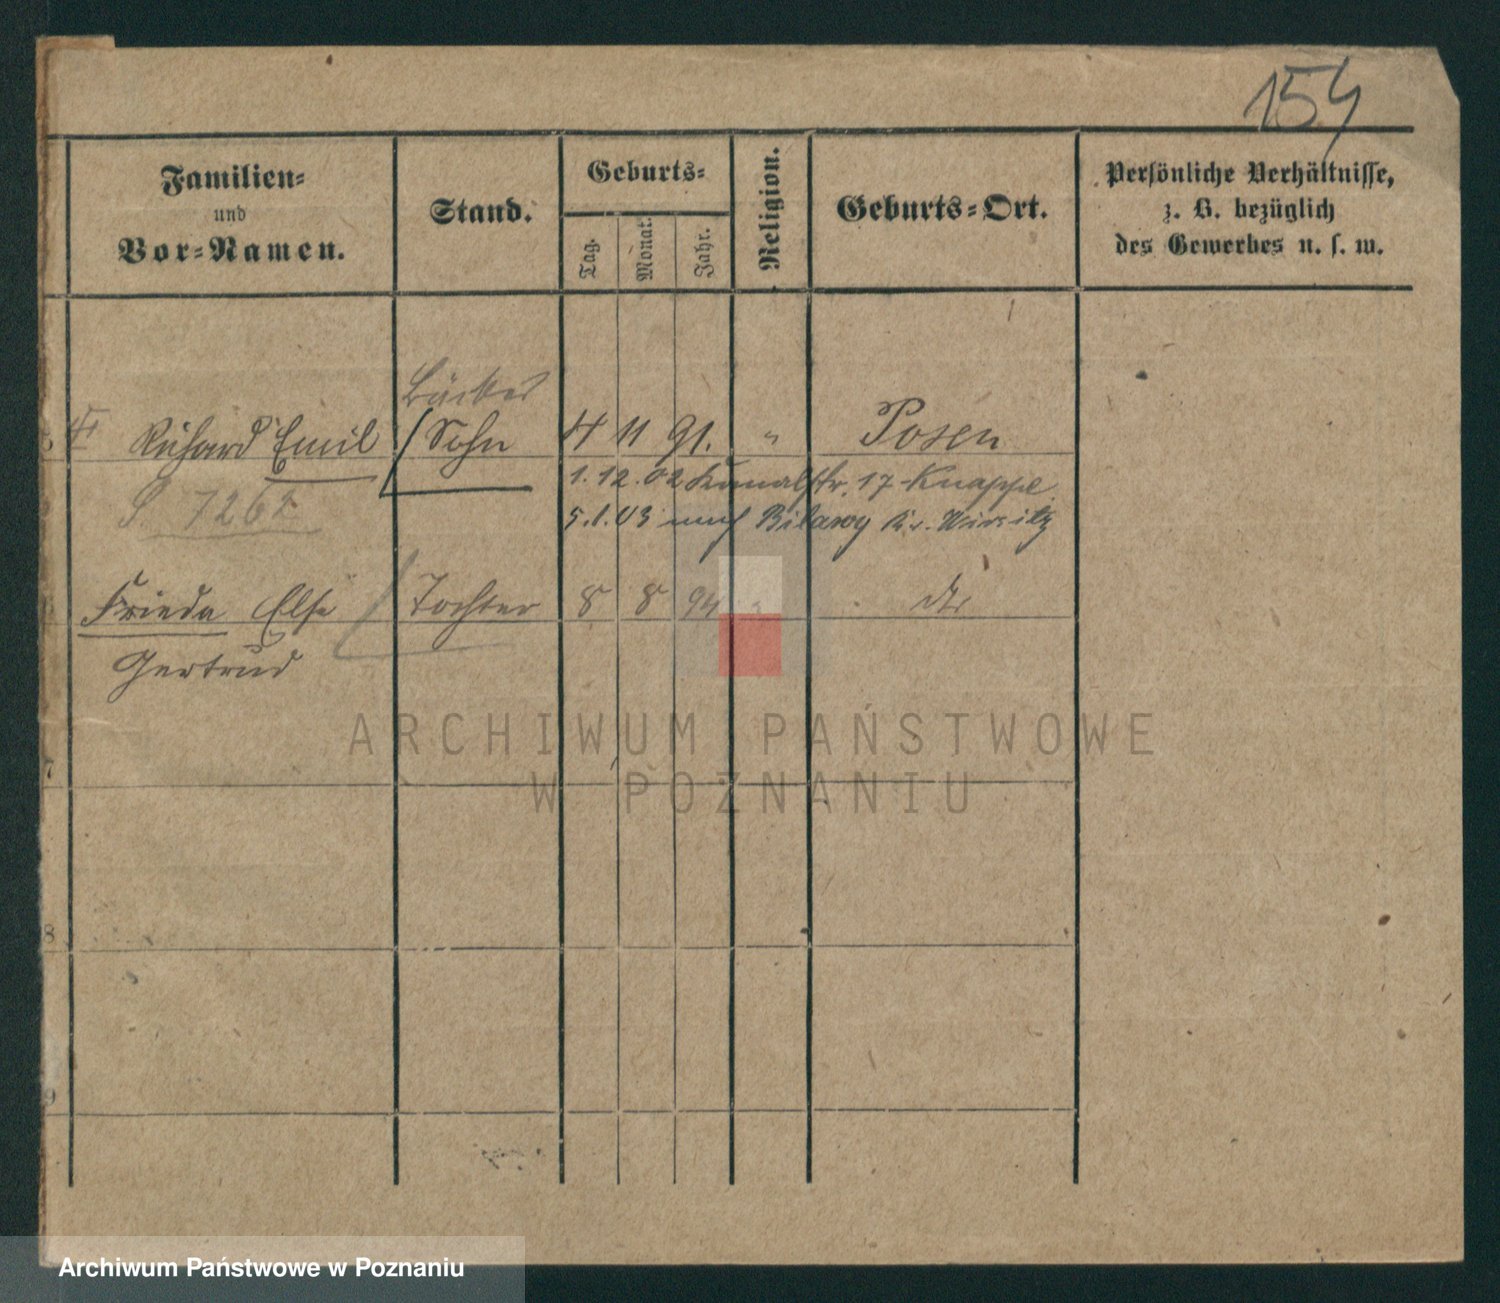 154
Familien=
und
Vor=Namen.
Stand.
Geburts=
Tag.
Monat.
Jahr.
Religion.
Geburts=Ort.
Persönliche Verhältnisse,
z. B. bezüglich
des Gewerbes u. s. w.
Bäcker
Richard Emil Sohn 4 11 91. " Posen
1.12.02 Kanalstr. 17 Knappe
5.1.03 nach Bilawy Kr. Wirsitz
Frieda Else Tochter 8 8 94 "
Gertrud
7
8
9
ARCHIWUM PAŃSTWOWE
W POZNANIU
Archiwum Państwowe w Poznaniu